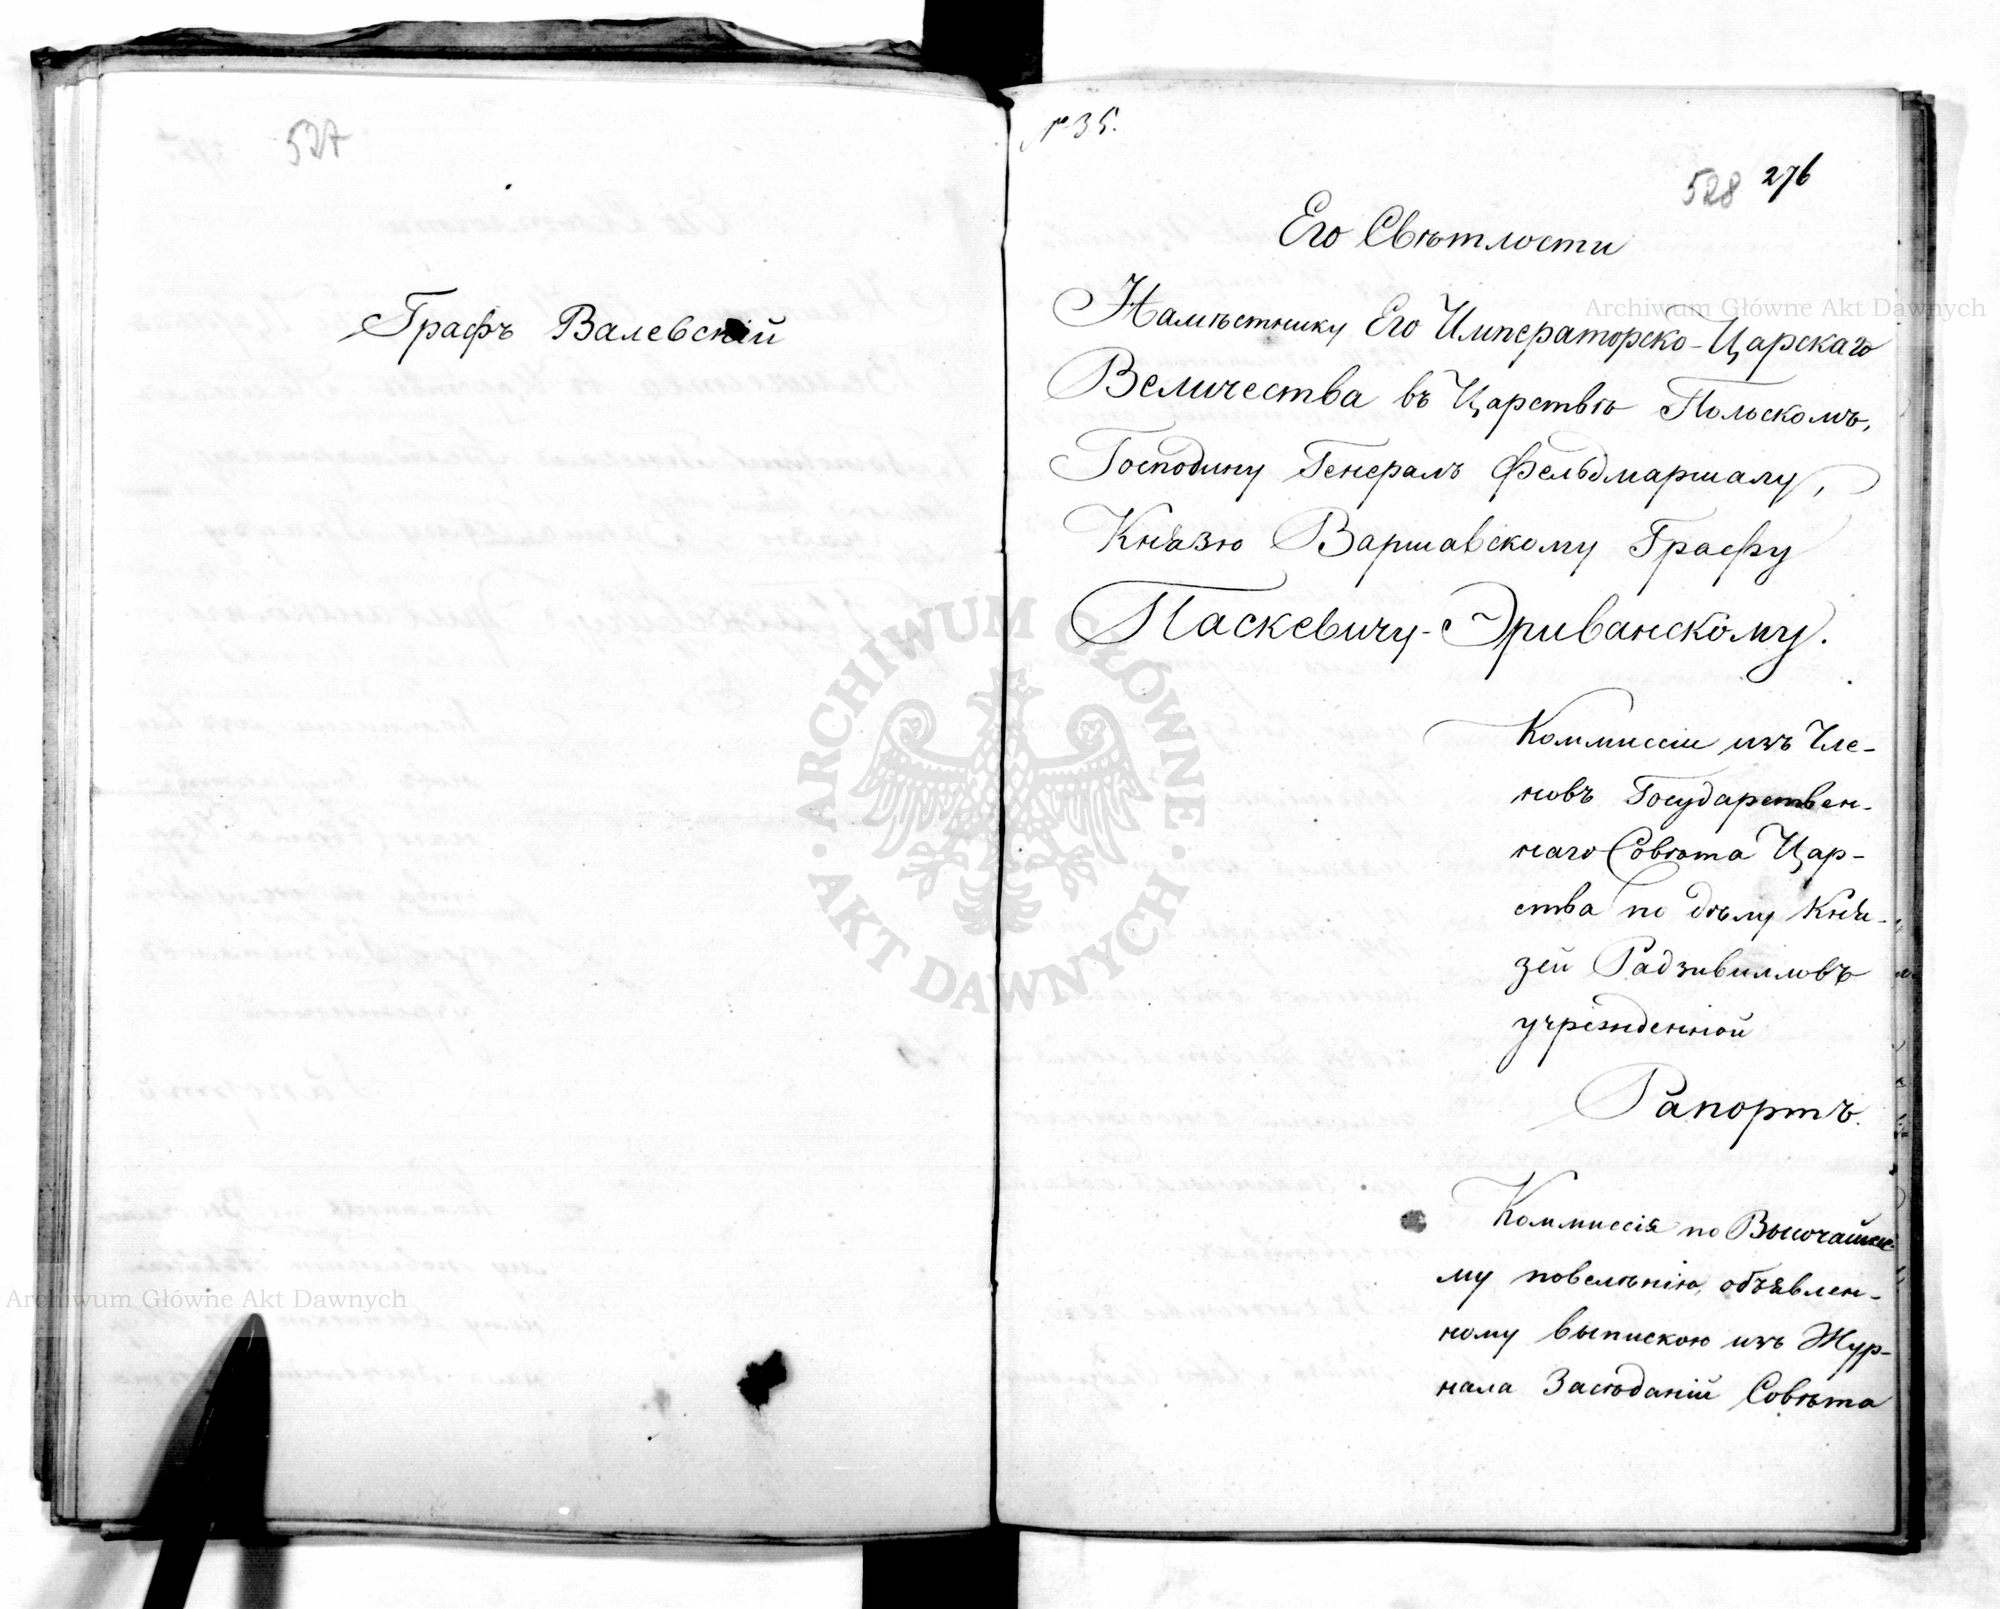 527
Графъ Валевскій
№ 35.
528 276
Его Свѣтлости
Намѣстнику Его Императорско-Царскаго
Величества въ Царствѣ Польскомъ,
Господину Генералъ Фельдмаршалу,
Князю Варшавскому Графу
Паскевичу-Эриванскому.
Коммиссіи изъ Чле-
новъ Государствен-
наго Совѣта Цар-
ства по дѣлу Кня-
зей Радзивилловъ
учрежденной
Рапортъ.
Коммиссія по Высочайше-
му повелѣнію, объявлен-
ному выпискою изъ Жур-
нала Засѣданій Совѣта
Archiwum Główne Akt Dawnych
Archiwum Główne Akt Dawnych
ARCHIWUM GŁÓWNE · AKT DAWNYCH ·